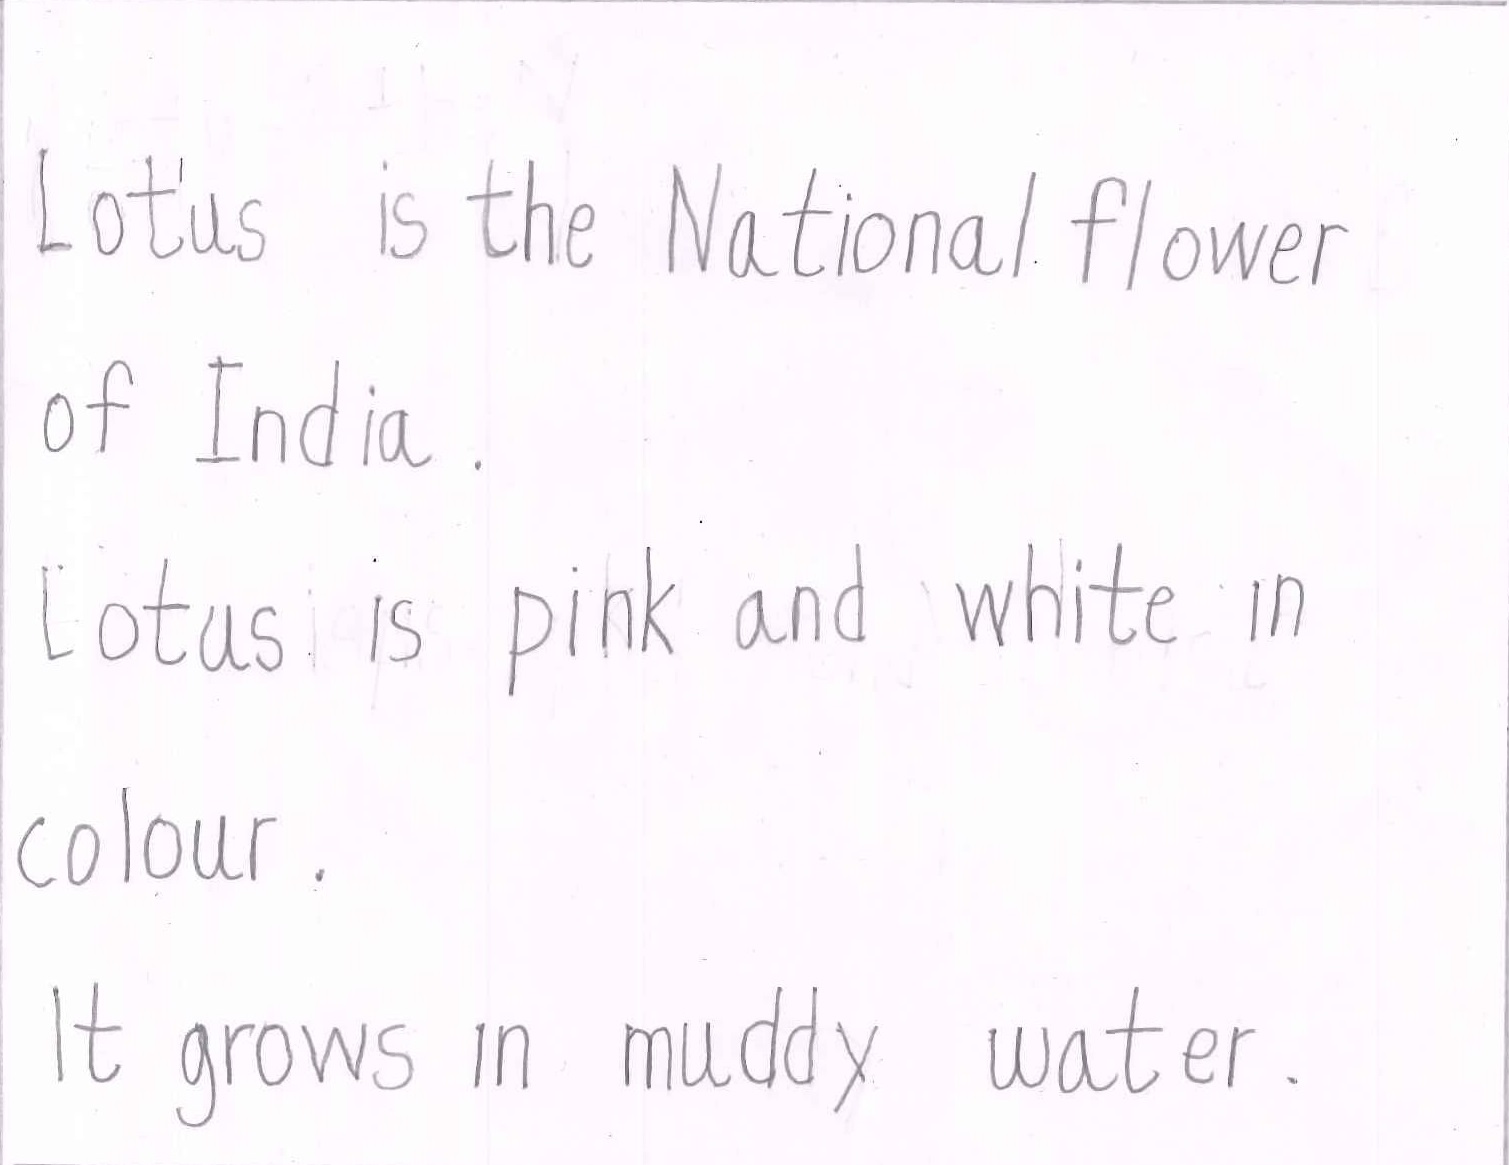 Lotus is the National flower
of India.
Lotus is pink and white in
colour.
It grows in muddy water.